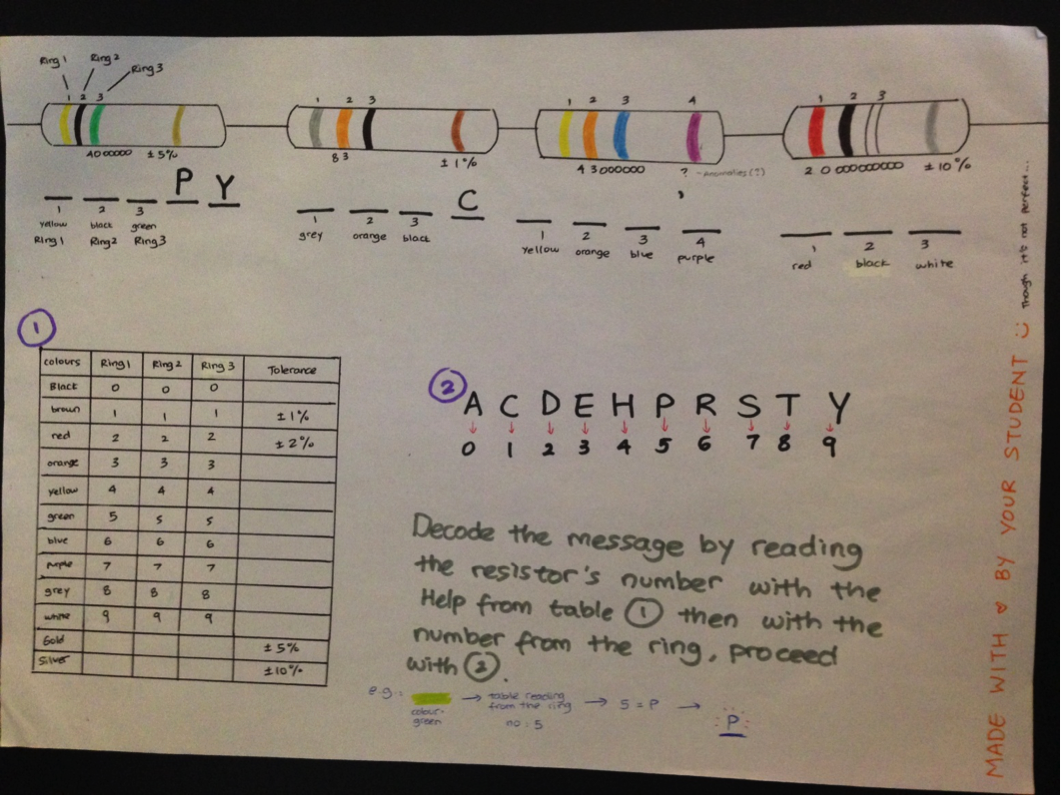 Ring 1
Ring 2
Ring 3
1 2 3
1 2 3
1 2 3 4
1 2 3
4000000 ±5%
83 ±1%
43000000 ? - Anomalies (?)
20000000000 ±10%
P Y
1 2 3
yellow black green
Ring 1 Ring2 Ring3
C
1 2 3
grey orange black
,
1 2 3 4
yellow orange blue purple
1 2 3
red black white
1
colours Ring 1 Ring 2 Ring 3 Tolerance
Black 0 0 0
brown 1 1 1 ±1%
red 2 2 2 ±2%
orange 3 3 3
yellow 4 4 4
green 5 5 5
blue 6 6 6
purple 7 7 7
grey 8 8 8
white 9 9 9
Gold ±5%
Silver ±10%
2
A C D E H P R S T Y
0 1 2 3 4 5 6 7 8 9
Decode the message by reading
the resistor's number with the
Help from table 1 then with the
number from the ring, proceed
with 2.
e.g.: → table reading → 5 = P → P
colour- from the ring
green no: 5
MADE WITH ♥ BY YOUR STUDENT :)
Though it's not perfect...